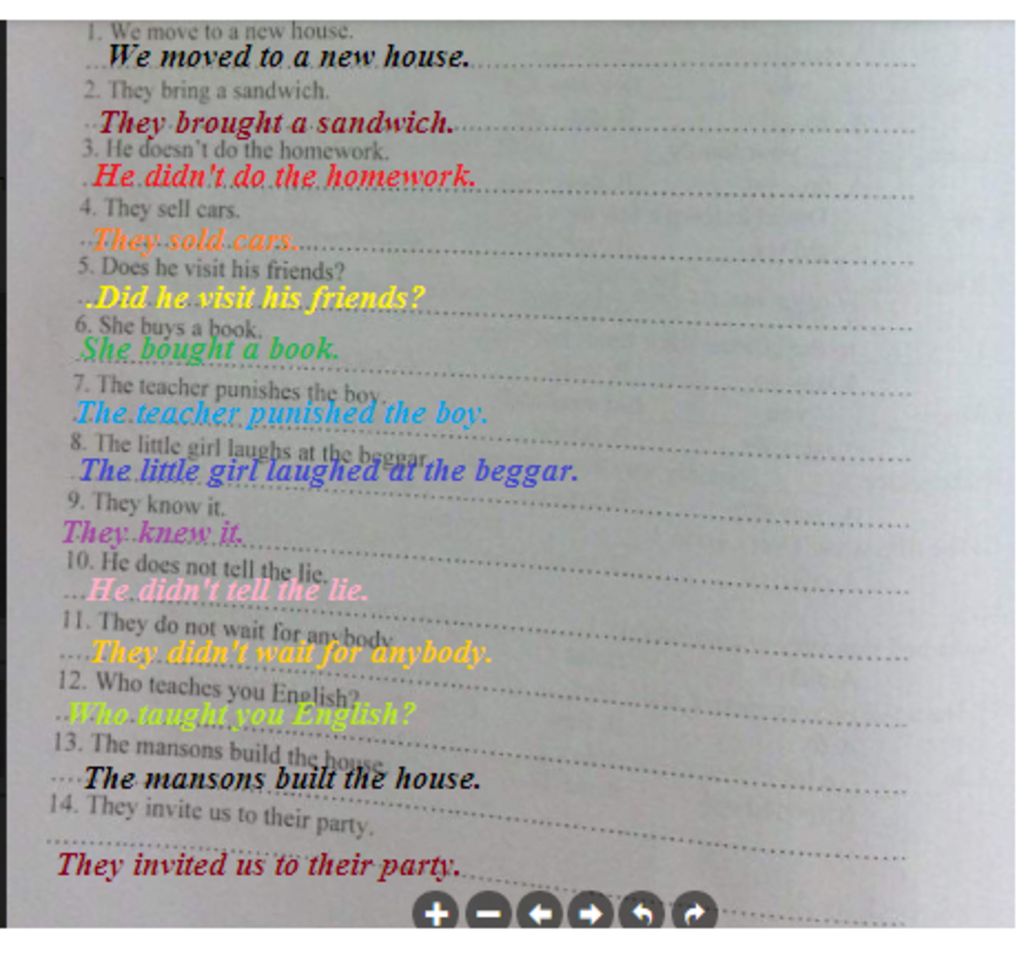 1. We move to a new house.
We moved to a new house.
2. They bring a sandwich.
They brought a sandwich.
3. He doesn't do the homework.
He didn't do the homework.
4. They sell cars.
They sold cars.
5. Does he visit his friends?
Did he visit his friends?
6. She buys a book.
She bought a book.
7. The teacher punishes the boy.
The teacher punished the boy.
8. The little girl laughs at the beggar.
The little girl laughed at the beggar.
9. They know it.
They knew it.
10. He does not tell the lie.
He didn't tell the lie.
11. They do not wait for anybody.
They didn't wait for anybody.
12. Who teaches you English?
Who taught you English?
13. The mansons build the house.
The mansons built the house.
14. They invite us to their party.
They invited us to their party.